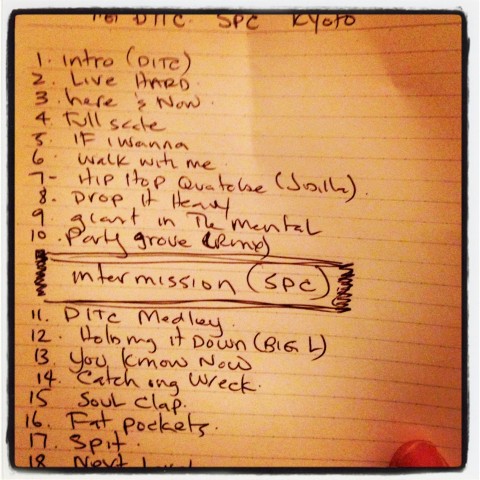 DITC. SPC Kyoto
1. intro (DITC)
2. Live HARD.
3. here & Now.
4. Full scale
5. IF i wanna
6. walk with me.
7- Hip Hop Quatobe (J Dilla).
8. Drop It Heavy
9. giant in The mental
10. Party grove (Rmx)
intermission (SPC)
11. DITC Medley.
12. Holding it Down (BIG L)
13. You know Now
14. Catch ing Wreck.
15 Soul Clap.
16. Fat pockets.
17. Spit.
18 Next Level